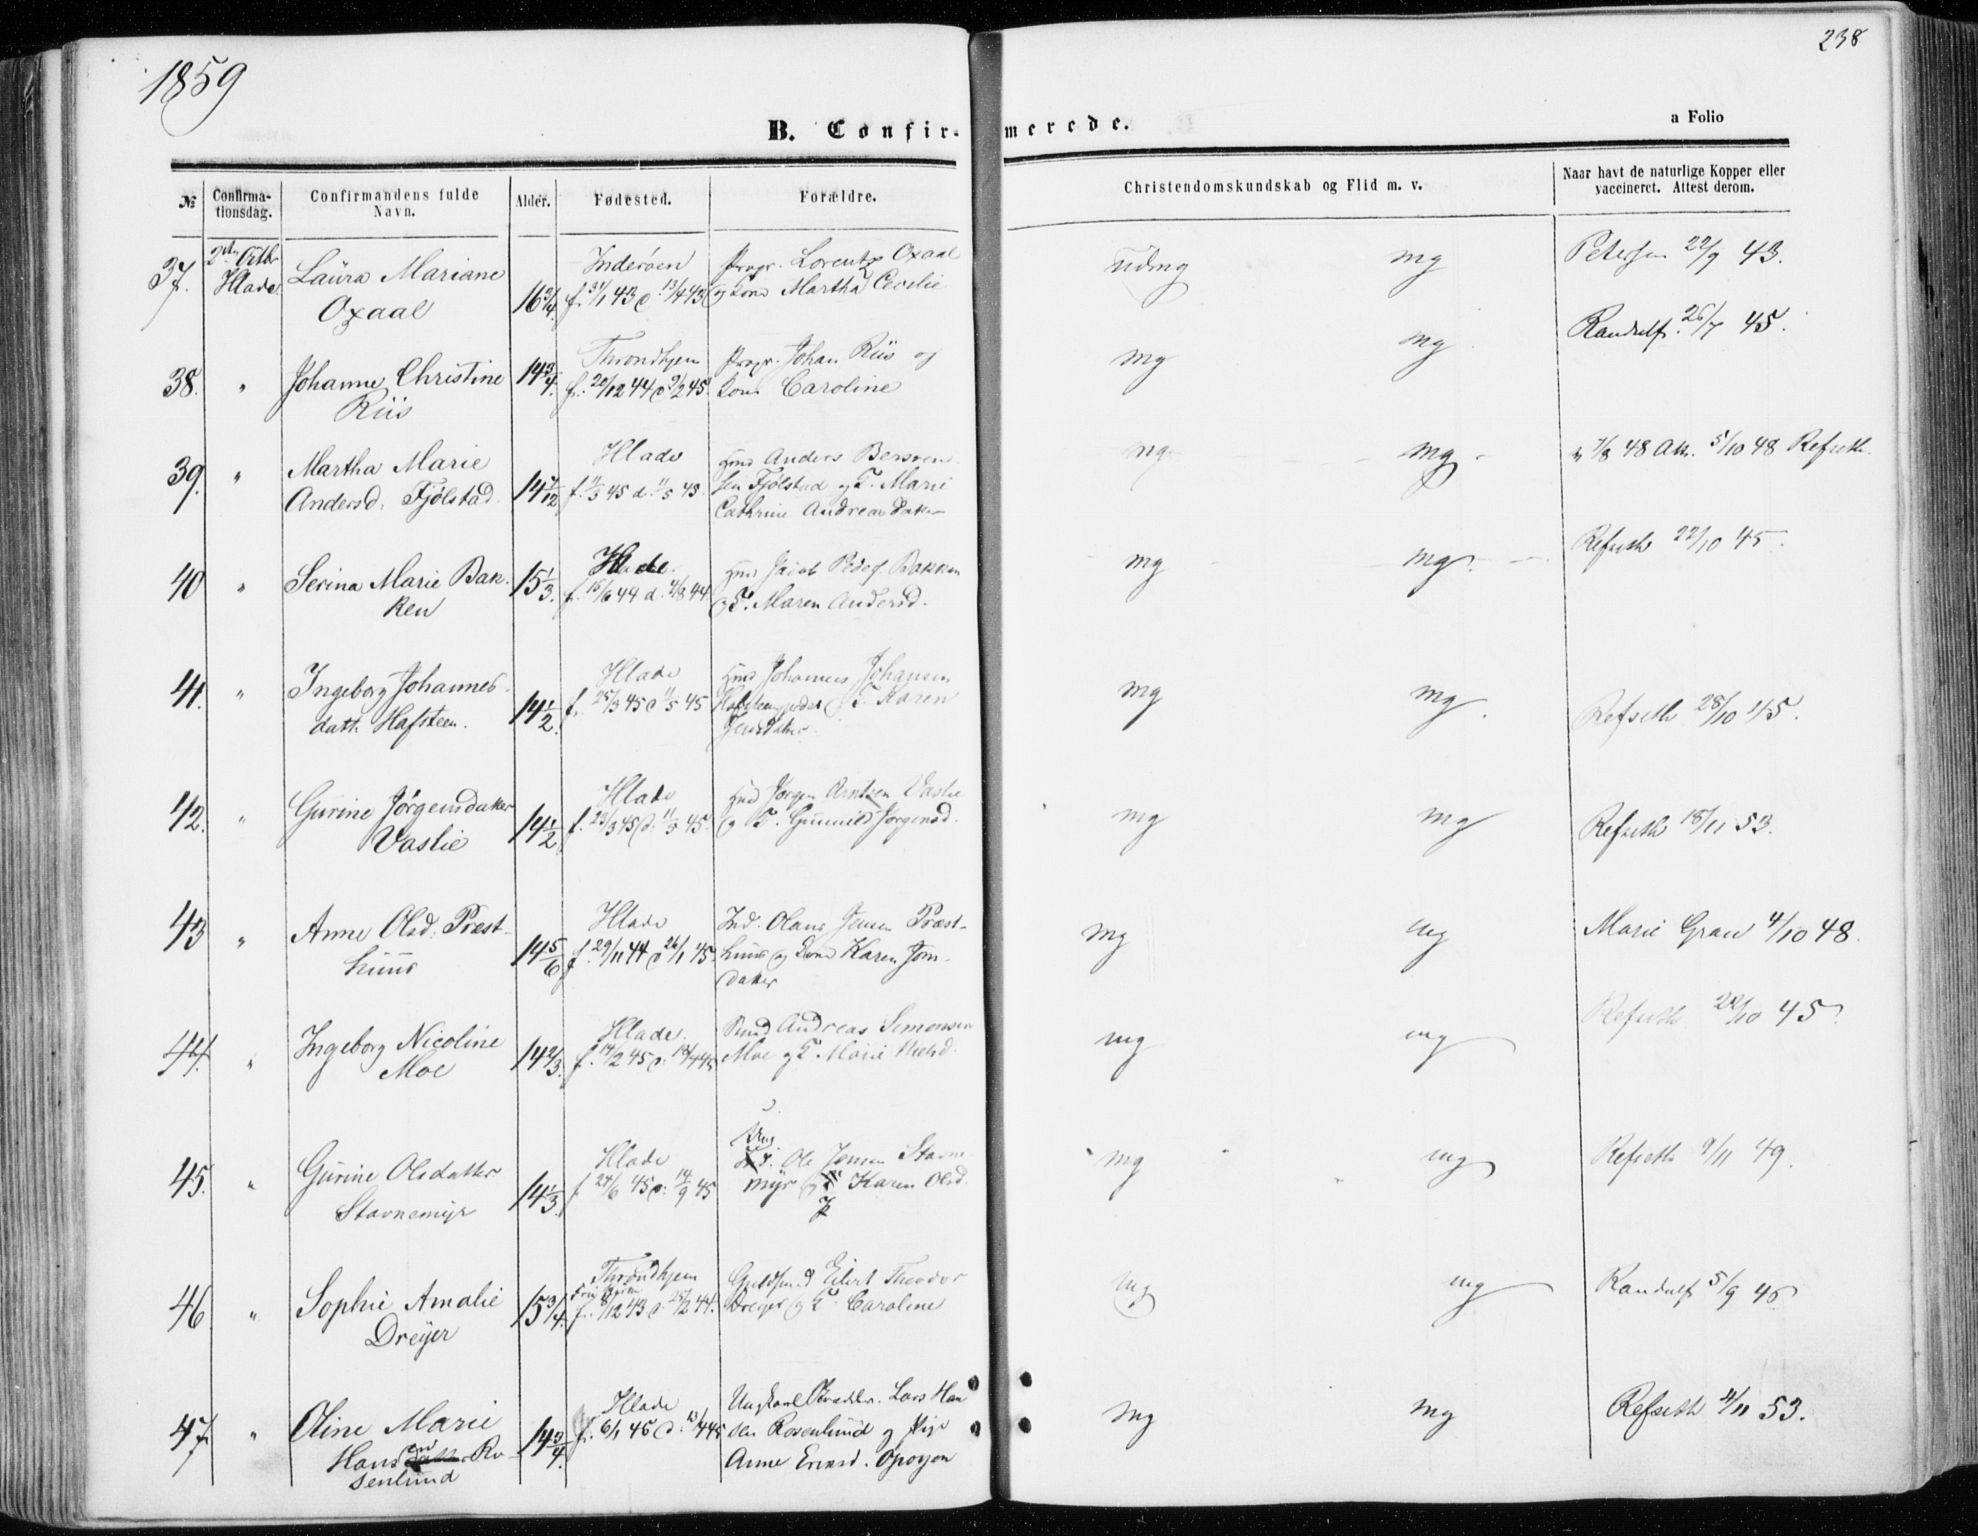 1859
238
B. Confirmerede.
a Folio
№ Confirmationsdag. Confirmandens fulde Navn. Alder. Fødested. Forældre. Christendomskundskab og Flid m. v. Naar havt de naturlige Kopper eller vaccineret. Attest derom.
37. 2den Octbr Laura Mariane 16 3/4. Inderøen Propr. Lorentz Oxaal udmg mg Petersen 22/9 43.
Hlade. Oxaal f. 31/1 43 d. 13/4 43 og Kone Martha Cecilie
38. " Johanne Christine 14 3/4. Throndhjem Propr. Johan Riis og mg mg Randulf 26/7 45.
Riis f. 20/12 44 d. 9/2 45. Kone Caroline
39. " Martha Marie 14 7/12 Hlade Hmd Anders Bersven- mg mg 7/8 48 Att. 5/10 48 Refseth.
Andersd. Fjølstad f. 45 d. 11/5 45. sen Fjølstad og K. Marie
Cathrine Andreasdatter
40 " Serina Marie Bak- 15 1/3. Hlade. Hmd Jacob Peders. Bakken mg mg. Refseth 22/10 45.
ken f. 15/6 44 d. 4/8 44 og K. Maren Andersd.
41. " Ingeborg Johannes- 14 1/2. Hlade Hmd Johannes Johansen mg mg. Refseth 28/10 45.
datt. Hafsteen. f. 25/3 45 d 11/5 45 og K. Karen
Jensdatter
42. " Gurine Jørgensdatter 14 1/2 Hlade Hmd Jørgen Arntsen Vaslie mg mg Refseth 18/11 53.
Vaslie f. 23/3 45 d. 11/5 45. og K. Gunnild Jørgensd.
43 " Anne Olsd. Præst- 14 5/6 Hlade Ind. Olaus Jensen Præst- mg mg Marie Gran 4/10 48.
huus f. 29/11 44 d 26/1 45. huus og Kone Karen Jons-
datter
44. " Ingeborg Nicoline 14 2/3. Hlade. Andreas Simonsen mg mg Refseth 22/10 45.
Moe f. 14/2 45 d. 14/4 45 Moe og K. Marie Nielsd.
45. " Gurine Olsdatter 14 1/3. Hlade Ung Ole Jensen Stavne- mg mg Refseth 9/11 49.
Stavnemyr f. 24/6 45 d. 14/9 45 myr og Karen Olsd.
46 " Sophie Amalie 15 3/4. Throndhjem Guldsmed Eilert Theodor mg mg Randulf 5/9 45
Dreyer f. 8/12 43 d. 25/2 44. Dreyer og K. Caroline
47 " Oline Marie 14 3/4. Hlade Ungkarl Lars Han mg mg Refseth 4/11 53.
Hansen Ro- f. 6/1 45 d. 13/4 45 sen Rosenlund og Pige
senlund Anne Ericsd. Opøyen